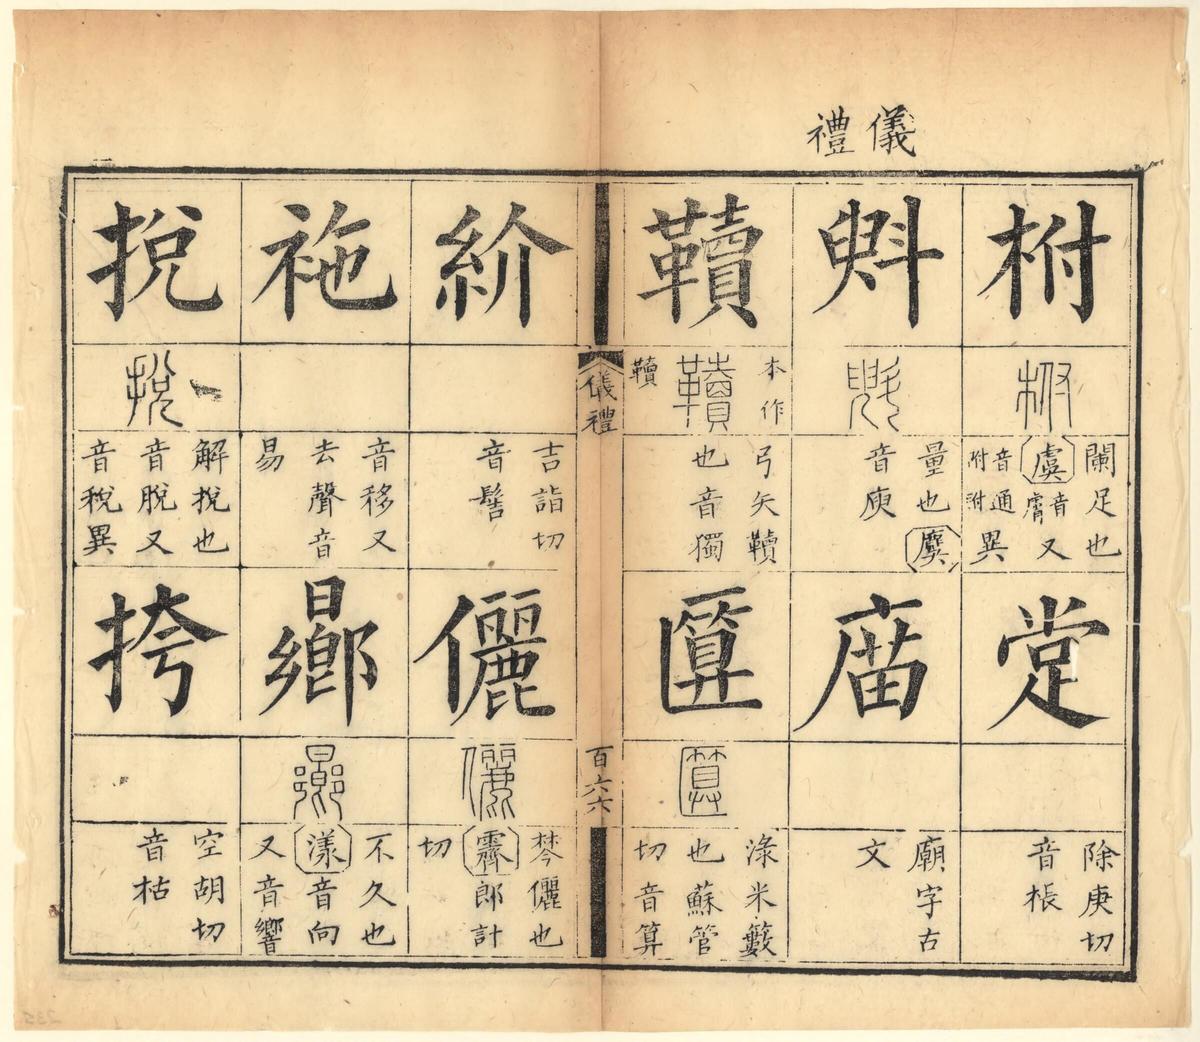 儀禮
柎
闌足也
虞音膚又
音附通異
斞
量也麌
音庾
韇
本作
韇
弓矢韇
也音獨
除庚切
音棖
庿
廟字古
文
匴
淥米籔
也蘇管
切音算
儀禮
百六六
紒
吉詣切
音髻
袘
音移又
去聲音
易
捝
解捝也
音脫又
音稅異
儷
棽儷也
霽郎計
切
曏
不久也
漾音向
又音響
挎
空胡切
音枯